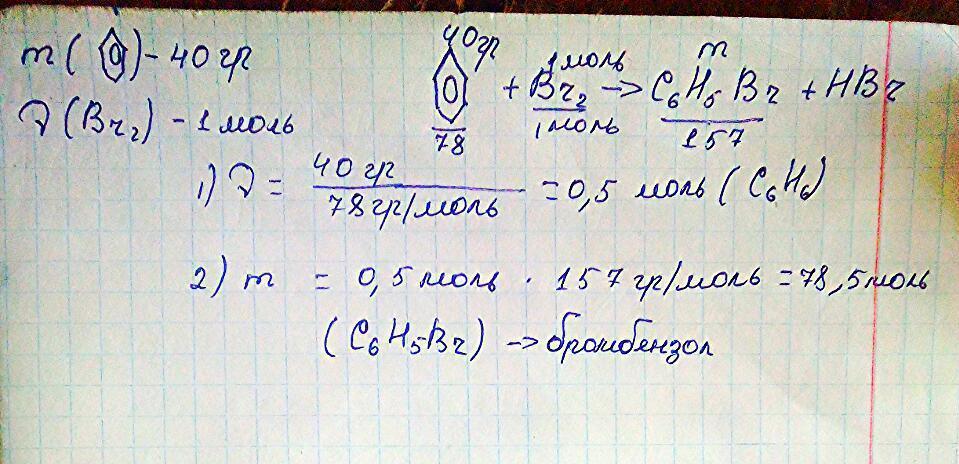 m(⌬) - 40 гр
ν(Br₂) - 1 моль
40гр 1 моль m
+ Br₂ -> C₆H₅Br + HBr
78 1 моль 157
1) ν = 40 гр / 78 гр/моль = 0,5 моль (C₆H₆)
2) m = 0,5 моль · 157 гр/моль = 78,5 моль
(C₆H₅Br) -> бромбензол